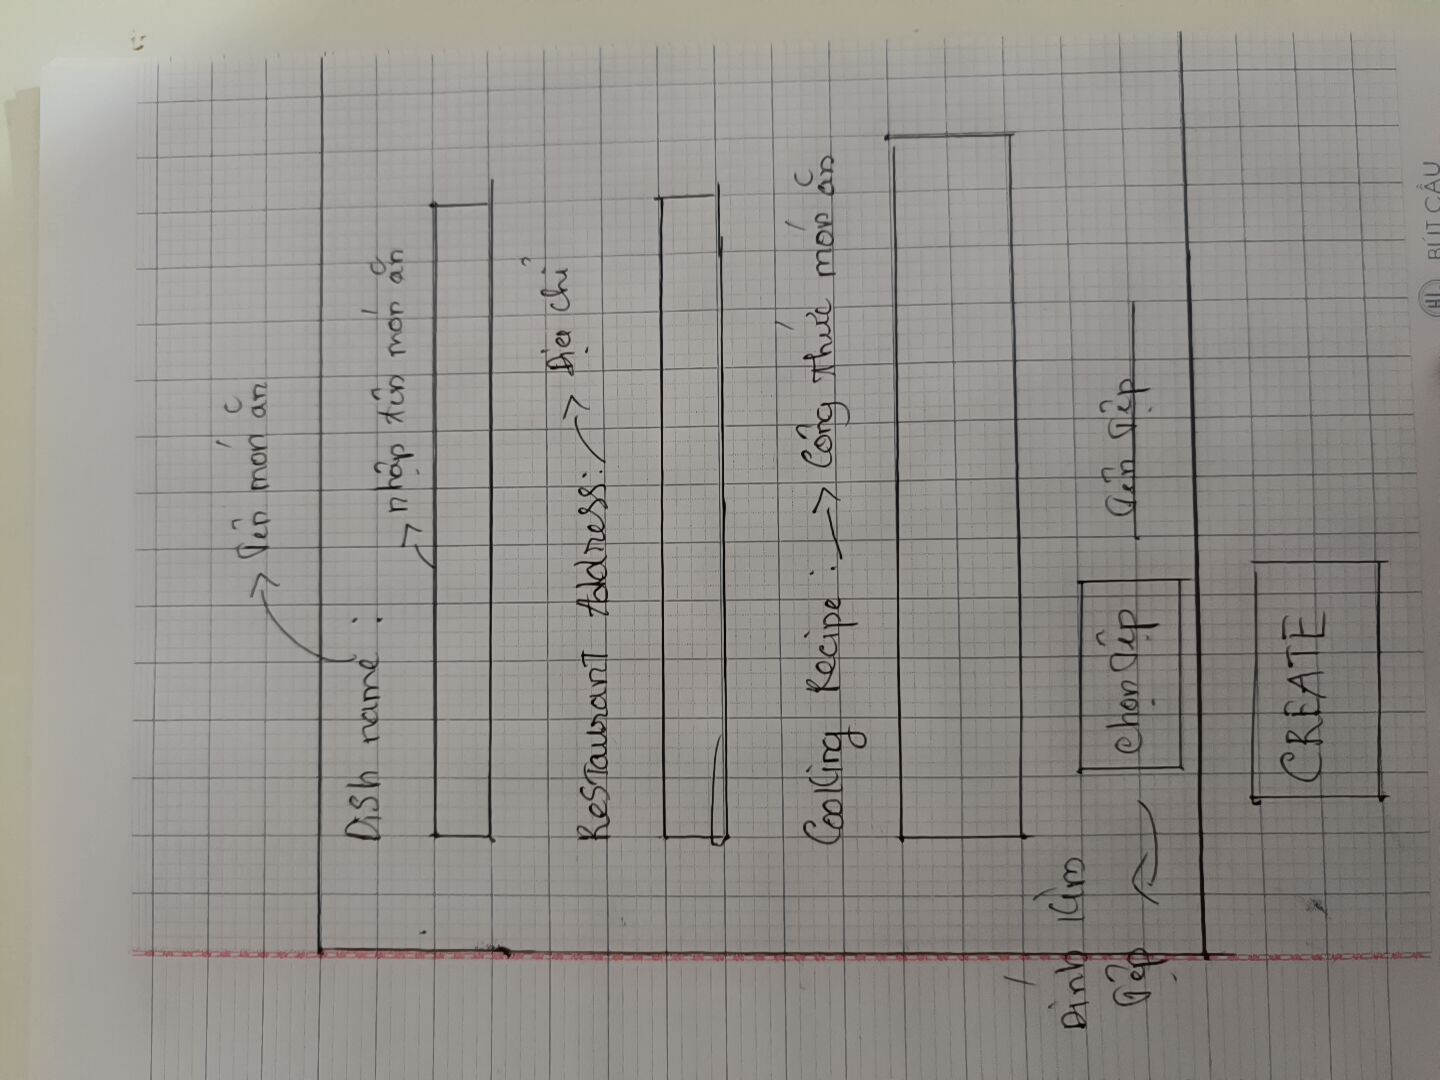 Tên món ăn
Dish name :
nhập tên món ăn
Restaurant Address:
Địa chỉ
Cooking Recipe :
Công thức món ăn
Đính kèm
Tệp
Chọn Tệp
Tên Tệp
CREATE
BÚT CẦU